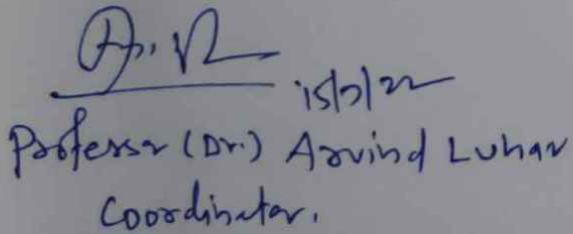 15/7/22
Professor (Dr.) Arvind Luhar
Coordinator.